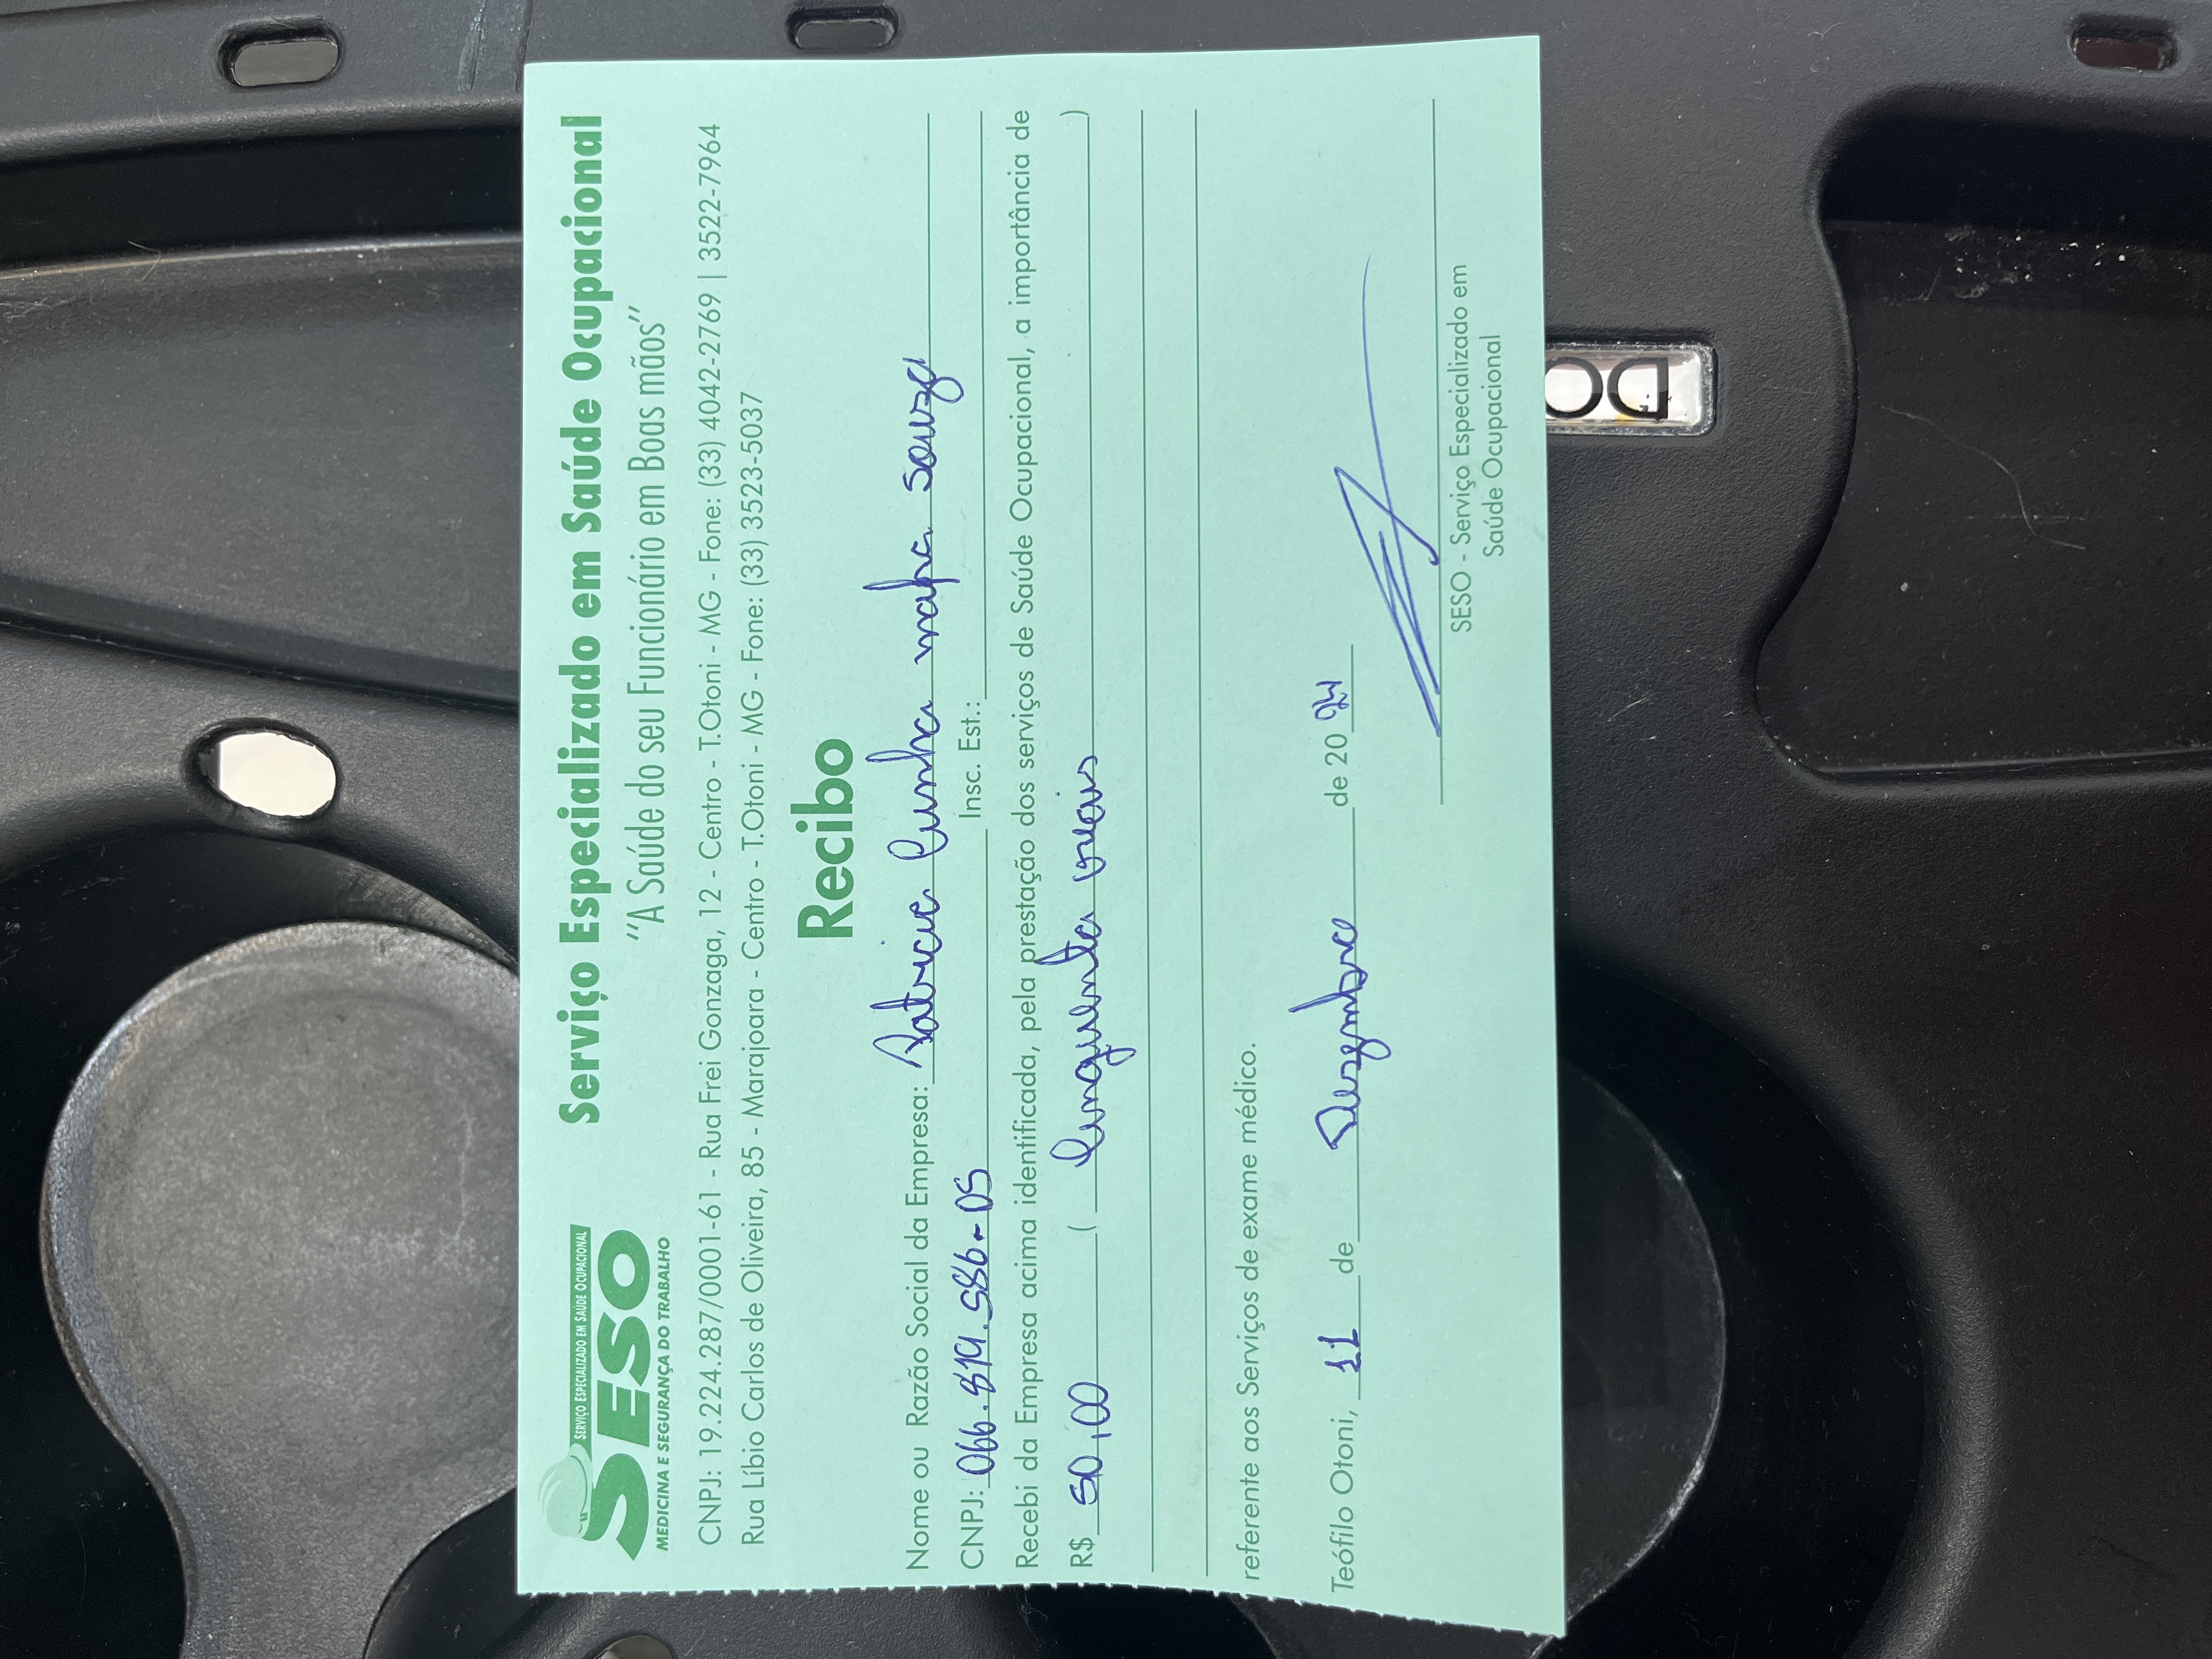 SERVIÇO ESPECIALIZADO EM SAÚDE OCUPACIONAL
SESO
MEDICINA E SEGURANÇA DO TRABALHO
Serviço Especializado em Saúde Ocupacional
"A Saúde do seu Funcionário em Boas mãos"
CNPJ: 19.224.287/0001-61 - Rua Frei Gonzaga, 12 - Centro - T.Otoni - MG - Fone: (33) 4042-2769 | 3522-7964
Rua Líbio Carlos de Oliveira, 85 - Marajoara - Centro - T.Otoni - MG - Fone: (33) 3523-5037
Recibo
Nome ou Razão Social da Empresa: Patricia Cunha mapa souza
CNPJ: 066.819.586-05 Insc. Est.:
Recebi da Empresa acima identificada, pela prestação dos serviços de Saúde Ocupacional, a importância de
R$ 50,00 ( Cinquenta reais )
referente aos Serviços de exame médico.
Teófilo Otoni, 11 de Dezembro de 2024
SESO - Serviço Especializado em
Saúde Ocupacional
DO